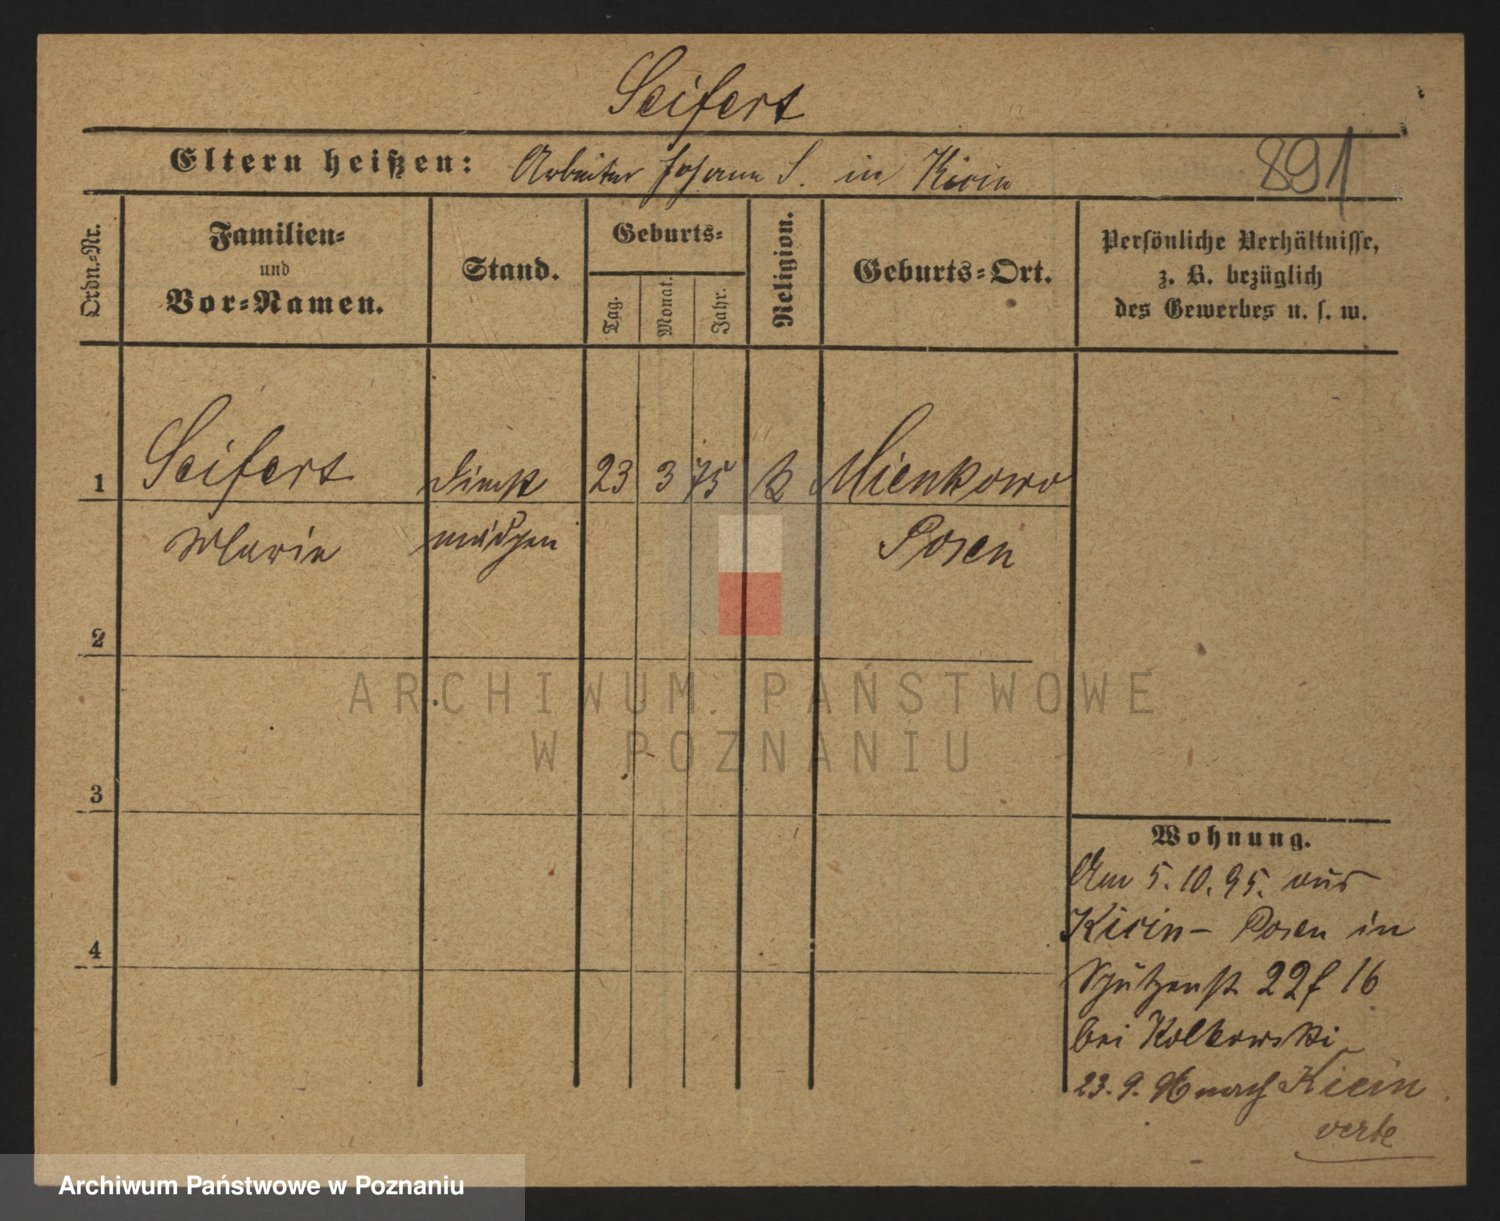 Seifert
Eltern heißen: Arbeiter Johann S. in Kicin
891
Ordn.-Nr.
Familien-
und
Vor-Namen.
Stand.
Geburts-
Tag.
Monat.
Jahr.
Religion.
Geburts-Ort.
Persönliche Verhältnisse,
z. B. bezüglich
des Gewerbes u. s. w.
1 Seifert Dienst 23 3 75 k Mienkowo
Marie mädchen Posen
2
3
4
Wohnung.
Am 5.10.95. aus
Kicin - Posen in
Schützenst 22 f 16
bei Kolkowski
23.9.96 nach Kicin
ARCHIWUM PAŃSTWOWE
W POZNANIU
Archiwum Państwowe w Poznaniu